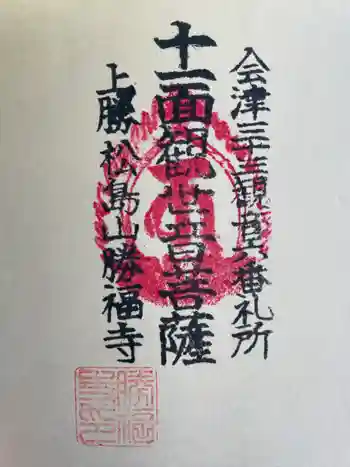 会津三十三観音六番札所
十一面観世音菩薩
上勝 松島山勝福寺